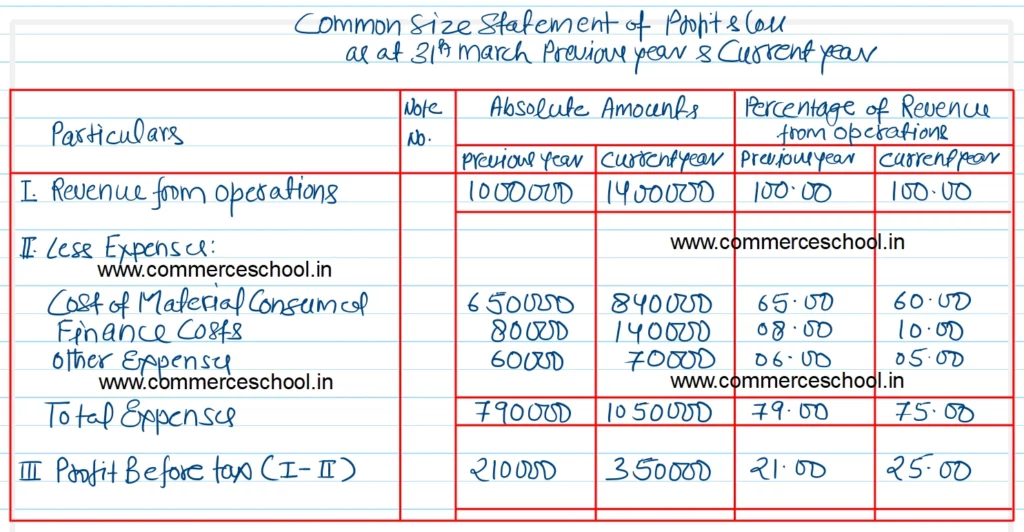 Common Size Statement of Profit & Loss
as at 31st March Previous year & Current year
Particulars Note No. Absolute Amounts Percentage of Revenue from operations
Previous year Current year Previous year Current year
I. Revenue from operations 1000000 1400000 100.00 100.00
II. Less Expenses:
www.commerceschool.in
www.commerceschool.in
Cost of Material Consumed 650000 840000 65.00 60.00
Finance Costs 80000 140000 08.00 10.00
Other Expenses 60000 70000 06.00 05.00
www.commerceschool.in www.commerceschool.in
Total Expenses 790000 1050000 79.00 75.00
III Profit Before tax (I-II) 210000 350000 21.00 25.00